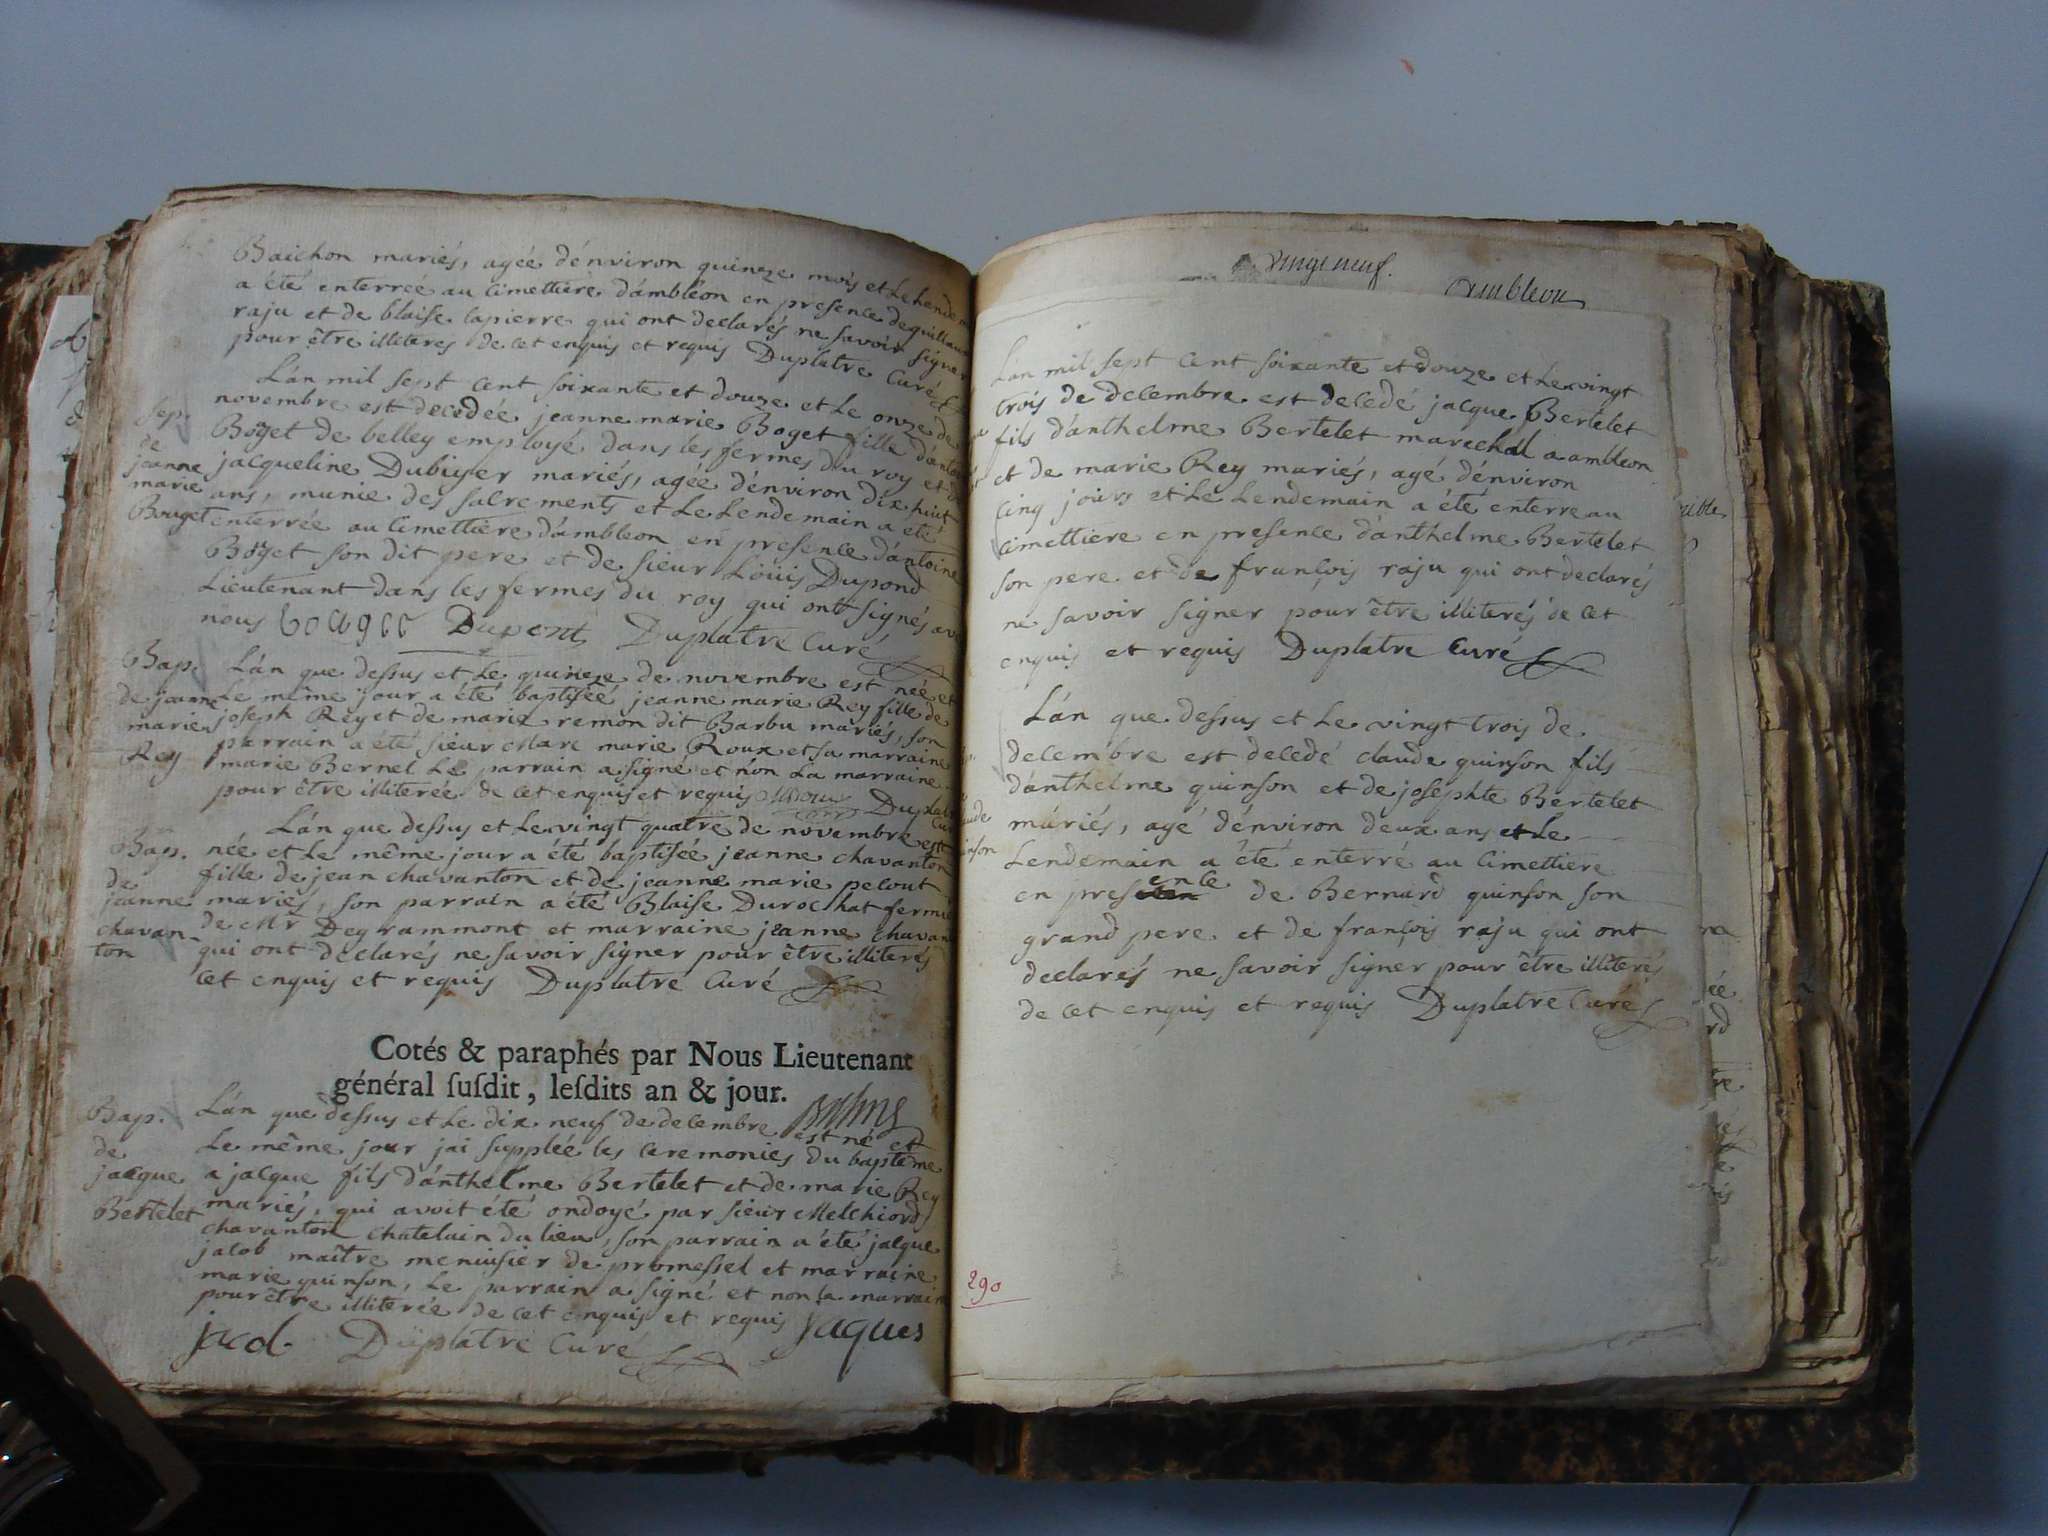 Baichon mariés, agée dénviron quinze mois et Le lendem
a été enterrée au Cimettiére d'ambléon en presence de guillaum
raju et de blaise lapierre qui ont declarés ne savoir signer
pour être illiteres de cet enquis et requis Duplatre Curé
L'án mil sept cent soixante et douze et Le onze de
novembre est decedée jeanne marie Boget fille d'anto
Boget de belley employé dans les fermes du roy et de
jacqueline Dubiger mariés, agée dénviron dix huit
ans, munie des sacrements et Le Lendemain a été
enterrée au Cimettiére d'ambleon en presence d'antoine
Boget son dit pere et de sieur Loüis Dupond
Lieutenant dans les fermes du roy qui ont signés ave
nous Dupont Duplatre Curé
Sep.
de
jeanne
marie
Bouget
L'án que dessus et Le quinze de novembre est neé et
Le même jour a été baptisée jeanne marie Rey fille de
joseph Rey et de marie remon dit Barbu mariés, son
parrain a été sieur Marc marie Roux et sa marraine
marie Bernel Le parrain a signé et non La marraine
pour être illiterée de cet enquis et requis Duplatre
Cu
Bap.
de jeanne
marie
Rey
L'án que dessus et Le vingt quatre de novembre est
née et Le même jour a été baptisée jeanne chavanton
fille de jean chavanton et de jeanne marie pelout
mariés, son parrain a été Blaise Durochat fermie
de Mr Degrammont et marraine jeanne chavan
qui ont declarés ne savoir signer pour être illiterés
cet enquis et requis Duplatre Curé
Bap.
de
jeanne
chavan-
ton
Cotés & paraphés par Nous Lieutenant
général ſuſdit, leſdits an & jour.
L'án que dessus et Le dix neuf de decembre est né et
Le même jour jai supplée les ceremonies du baptême
a jacque fils d'ánthelme Bertelet et de marie Rey
mariés, qui avoit été ondoyé par sieur Melchiord
chavanton chatelain du lieu, son parrain a été jacque
jacob maître menuisier de promessel et marraine
marie quinson, Le parrain a signé et non la marraine
pour être illiterée de cet enquis et requis jaques
jacol Duplatre Curé
Bap.
de
jacque
Bertelet
vingt neuf.
Ambleon
L'án mil sept cent soixante et douze et Le vingt
trois de decembre est decedé jacque Bertelet
fils d'anthelme Bertelet marechal a ambleon
et de marie Rey mariés, agé dénviron
cinq jours et Le Lendemain a été enterre au
Cimettiere en presence d'anthelme Bertelet
son pere et de françois raju qui ont declarés
ne savoir signer pour être illiterés de cet
enquis et requis Duplatre Curé
L'án que dessus et Le vingt trois de
decembre est decedé claude quinson fils
d'ánthelme quinson et de josephte Bertelet
máriés, agé dénviron deux ans et Le
Lendemain a été enterré au Cimettiere
en presence de Bernard quinson son
grand pere et de françois raju qui ont
declarés ne savoir signer pour être illiterés
de cet enquis et requis Duplatre Curé
290